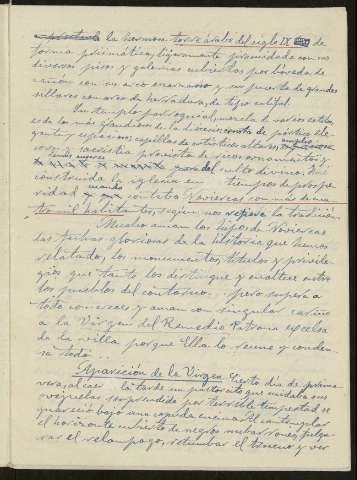 la hermosa torre árabe del siglo IX de
forma prismática, ligeramente piramidada con sus
diversos pisos y galerias cubiertas por bóveda de
cañón con arco encarnano y su puerta de grandes
sillares con arco de herradura, de tipo califal.
Su templo parroquial, mezcla de varios estilos,
es de los más grandiosos de la diócesis consta de pórtico, ele
gantes y espaciosas capillas de artísticos altares, amplio
coro y sacristía provista de ricos ornamentos y
del culto divino. Fué
construida la iglesia en tiempos de prospe
ridad cuando contaba Noviercas con más de cua
tro mil habitantes, según nos refiere la tradición
Mucho aman los hijos de Noviercas
las fechas gloriosas de la historia que hemos
relatado, los monumentos, títulos y privile
gios que tanto los distingue y enaltece entre
los pueblos del contorno... pero supera a
todo conocer y aman con singular cariño
a la Virgen del Remedio Patrona excelsa
de la villa porque Ella lo reune y conden
sa todo...
Aparición de la Virgen Cierto día de prima
vera, al caer la tarde un pastorcito que cuidaba sus
ovejuelas sorprendido por terrible tempestad se
guareció bajo una copuda encina. Al contemplar
el horizonte cubierto de negros nubarrones, fulgu
rar el relámpago, retumbar el trueno y ver